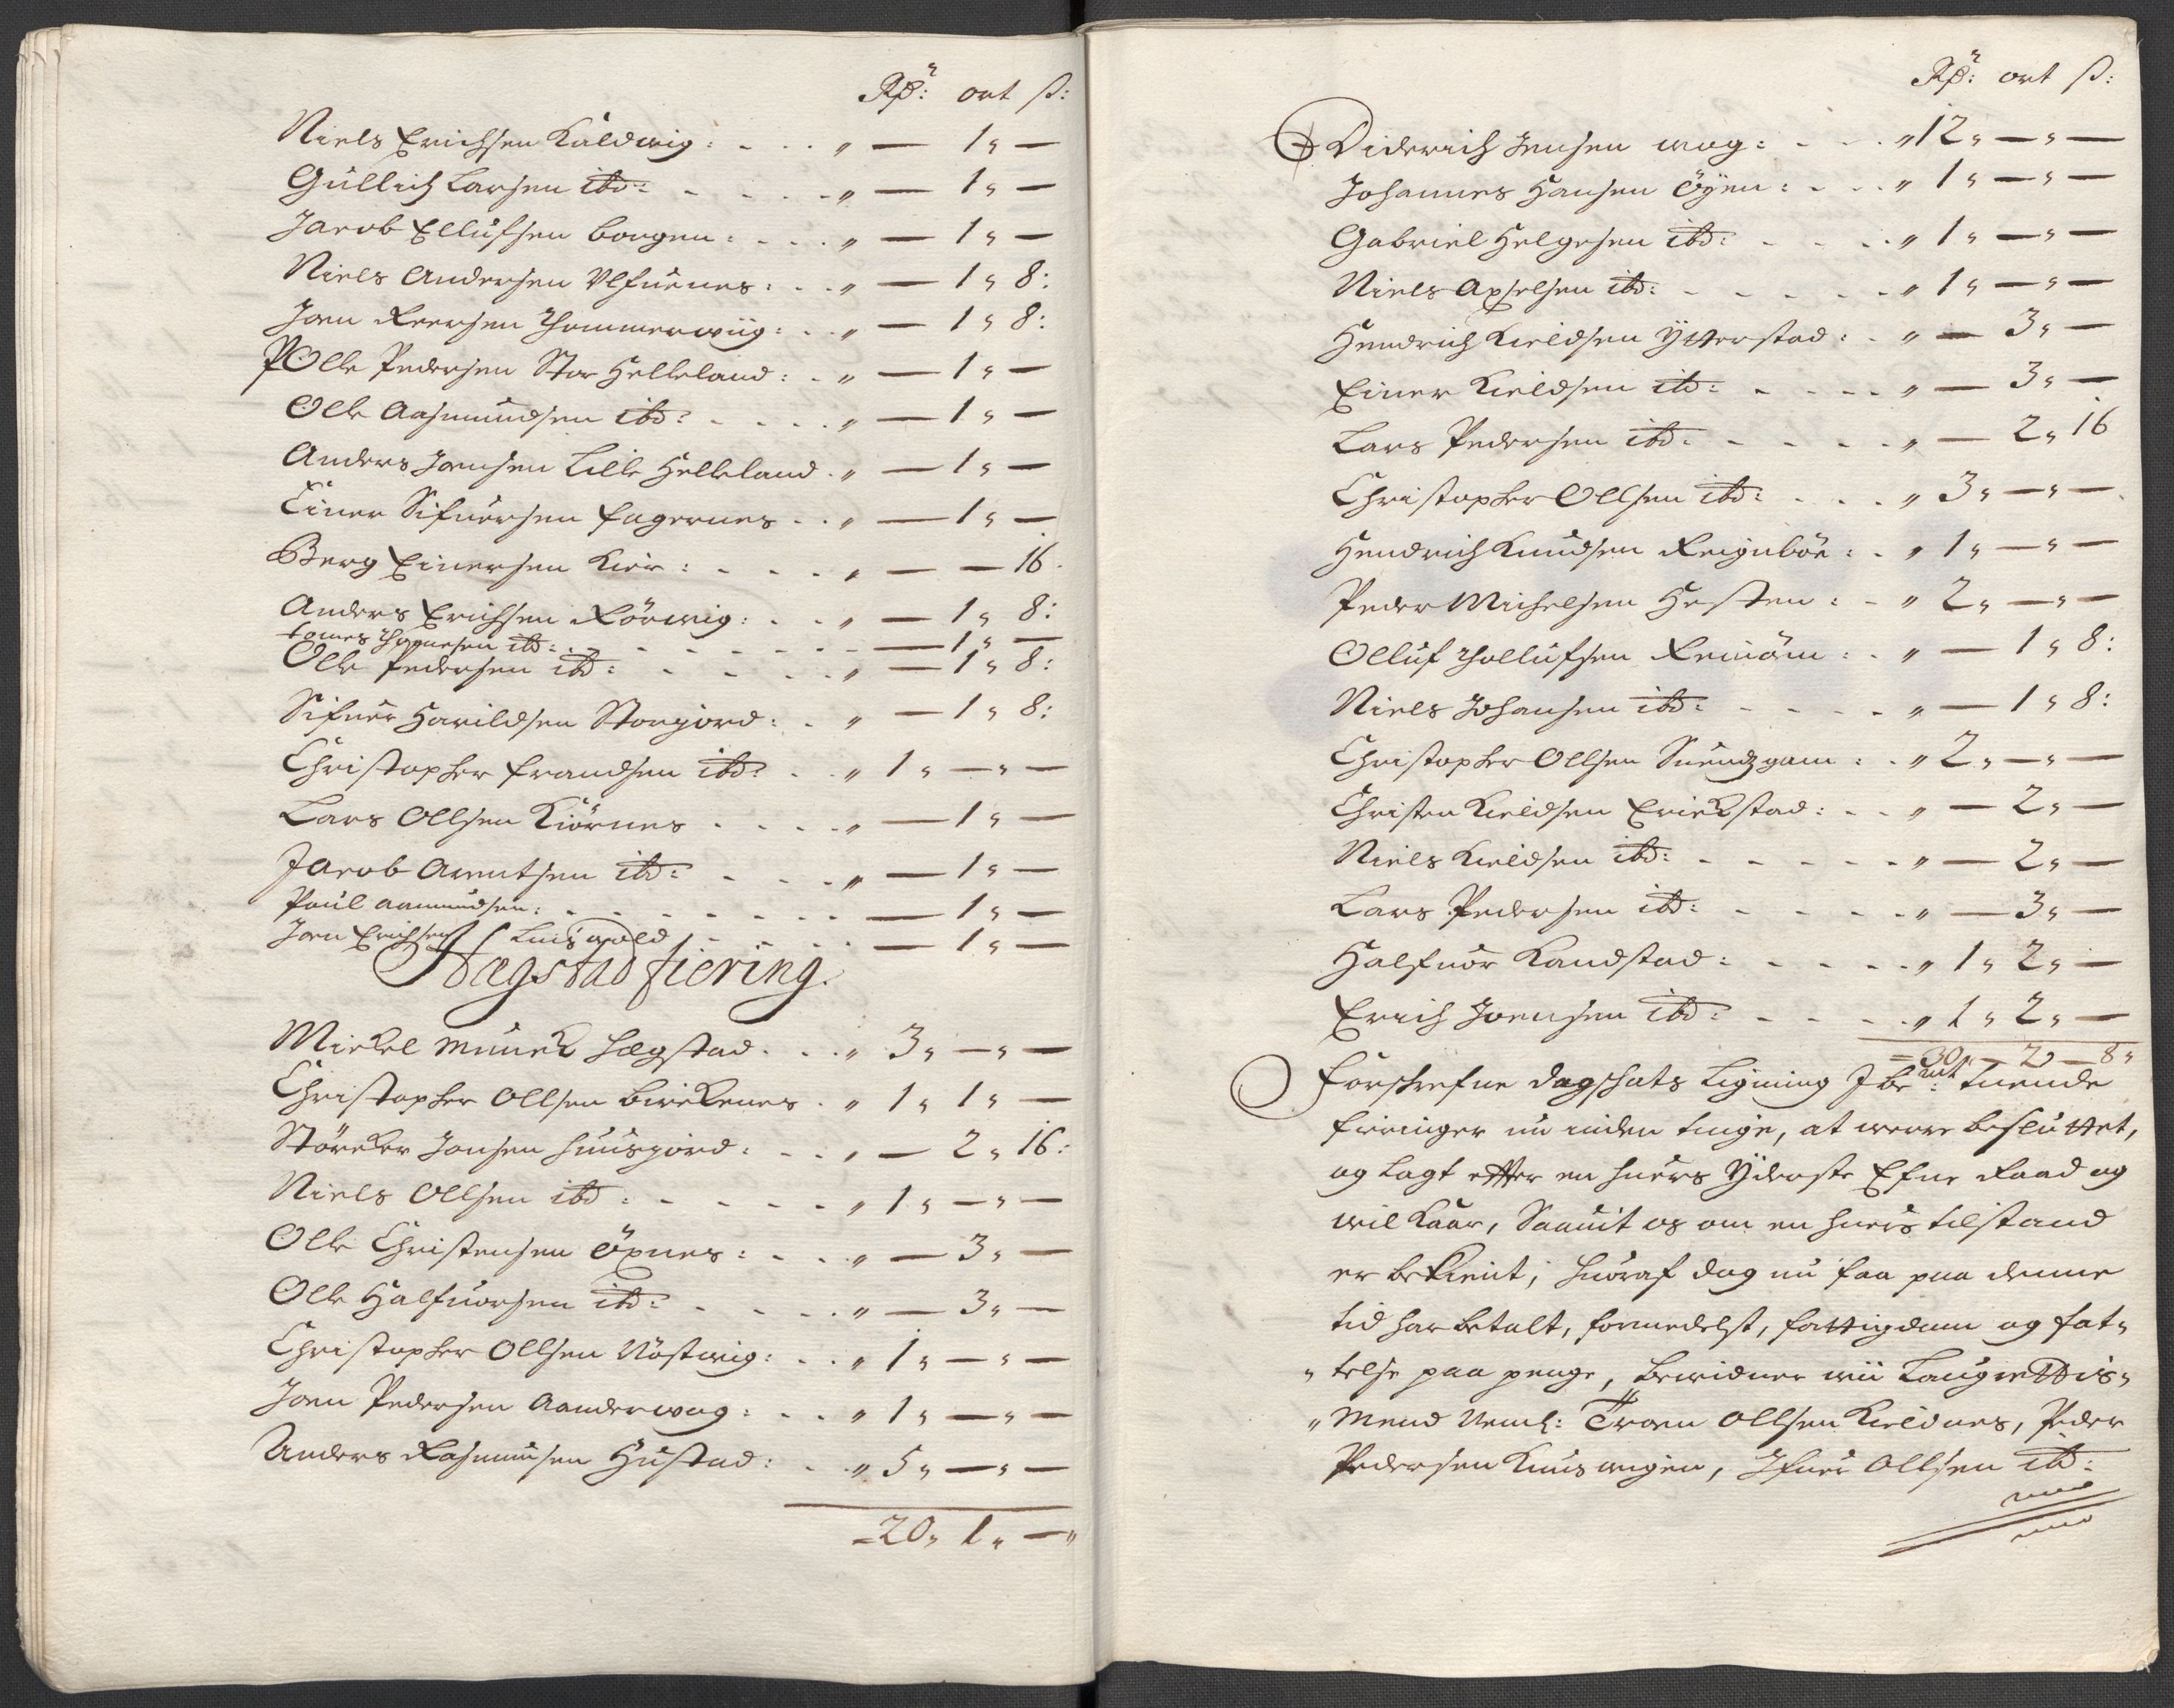 Rdr: ort ß:
Niels Erichsen Kaldwig: - - - „ — 1 „ —
Gullich Larsen ibd: - - - - „ — 1 „ —
Jacob Ellufsen borgen: - - - „ — 1 „ —
Niels Andersen Ulfuenes: - - „ — 1 „ 8:
Joen Reersen Thommerwiig: - - „ — 1 „ 8:
Olle Pedersen Stor Helleland: - „ — 1 „ —
Olle Aasmundsen ibd: - - - - „ — 1 „ —
Anders Joensen Lille Helleland - „ — 1 „ —
Einer Sifuersen fagernes - - „ — 1 „ —
Berg Einersen Kier: - - - - „ — — 16
Anders Erichsen Rörwig: - - „ — 1 „ 8:
tomes Thomesen ibd: - - - - - - — 1 „ —
Olle Pedersen ibd: - - - - „ — 1 „ 8:
Sifuer Harildsen Storjord: - „ — 1 „ 8:
Christopher frandsen ibd: - - „ 1 „ — „ —
Lars Ollsen Kiörnes - - - - „ — 1 „ —
Jacob Arentsen ibd: - - - „ — 1 „ —
Paul aamundsen: - - - - - - - — 1 „ —
Joen Erichsen - - - - — 1 „ —
Hægstad fiering.
Mickel Munck Hægstad - - „ 3 „ — „ —
Christopher Ollsen birckenes - „ 1 „ 1 „ —
Störcker Jonsen Huusjord: - - „ — 2 „ 16:
Niels Ollsen ibd: - - - - - „ 1 „ — „ —
Olle Christensen Öxnes: - - - „ — 3 „ —
Olle Halfuorsen ibd: - - - - „ — 3 „ —
Christopher Ollsen Nöstwig: - - „ 1 „ — „ —
Joen Pedersen Aanderwog: - - „ 1 „ — „ —
Anders Rasmusen Hustad: - - „ 5 „ — „ —
= 20 „ 1 „ — „
Rdr: ort ß:
Diderich Jensen wog: - - - „ 12 „ — „ —
Johannes Hansen Öÿen: - - - „ 1 „ — „ —
Gabriel Helgesen ibd: - - - - „ 1 „ — „ —
Niels Axselsen ibd: - - - - - „ 1 „ — „ —
Hendrich Kieldsen Ytterstad: - „ — 3 „ —
Einer Kieldsen ibd: - - - - „ — 3 „ —
Lars Pedersen ibd: - - - - - „ — 2 „ 16
Christopher Ollsen ibd: - - - „ 3 „ — „ —
Hendrich Knudsen Reignböe: - „ 1 „ — „ —
Peder Michelsen Hesten: - „ 2 „ — „ —
Olluf Thollufsen Remöen: - „ — 1 „ 8:
Niels Johansen ibd: - - - - „ — 1 „ 8:
Christopher Ollsen Suendzgam: - „ 2 „ — „ —
Christen Kieldsen Erickstad: - - „ — 2 „ —
Niels Kieldsen ibd: - - - - - „ — 2 „ —
Lars Pedersen ibd: - - - - - „ — 3 „ —
Halfuor Kandstad: - - - - „ 1 „ 2 „ —
Erich Joensen ibd: - - - - „ 1 „ 2 „ —
= 30 „ — 2 — 8 „
forschrefne dagschats Ligning J bemt: tuende
fieringer nu inden tinge, at were besluttet,
og lagt etter en huers Yderste Efne Raad og
wilkaar, Saauit os om en huers tilstand
er bekient; huoraf dog nu faa paa denne
tid har betalt, formedelst, fattigdom og fat„
„ telse paa penge, bewidner wii Laugrettis„
„ Mend Neml: Troen Ollsen Kieldnes, Peder
Pedersen Kuuswigen, Ifuer Ollsen ibd: